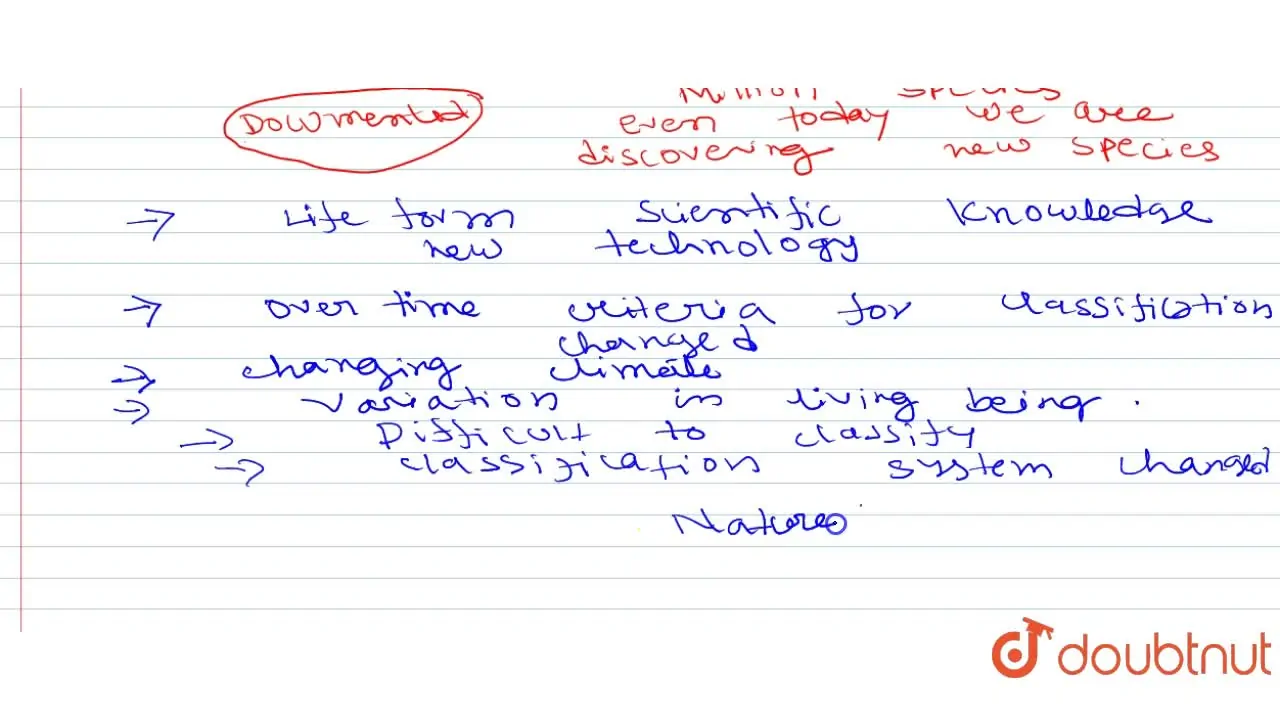 Million species
Documented even today we are
discovering new species
→ Life form scientific knowledge
new technology
→ over time criteria for classification
changed
→ changing climate
→ variation in living being.
→ Difficult to classify
→ classification system changed
Nature
doubtnut